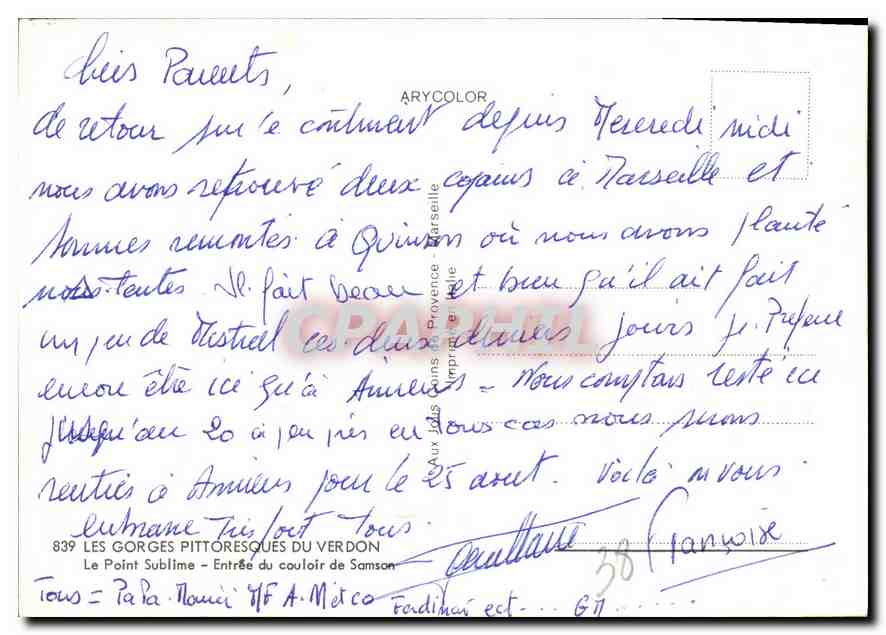 Chers Parents,
ARYCOLOR
de retour sur le continent depuis Mercredi midi
nous avons retrouvé deux copains à Marseille et
sommes remontés à Quinson où nous avons planté
nos tentes. Il fait beau et bien qu'il ait fait
un peu de Mistral ces deux derniers jours je préfère
encore être ici qu'à Amiens = Nous comptons resté ici
jusqu'au 20 à peu près en tous cas nous serons
rentrés à Amiens pour le 25 aout. Voilà on vous
embrasse très fort tous.
Françoise
38
839 LES GORGES PITTORESQUES DU VERDON
Le Point Sublime - Entrée du couloir de Samson
Tous = PaPa. A.
Aux Jolis Coins de Provence - Marseille
Imprimé en Italie
CPAPHIL